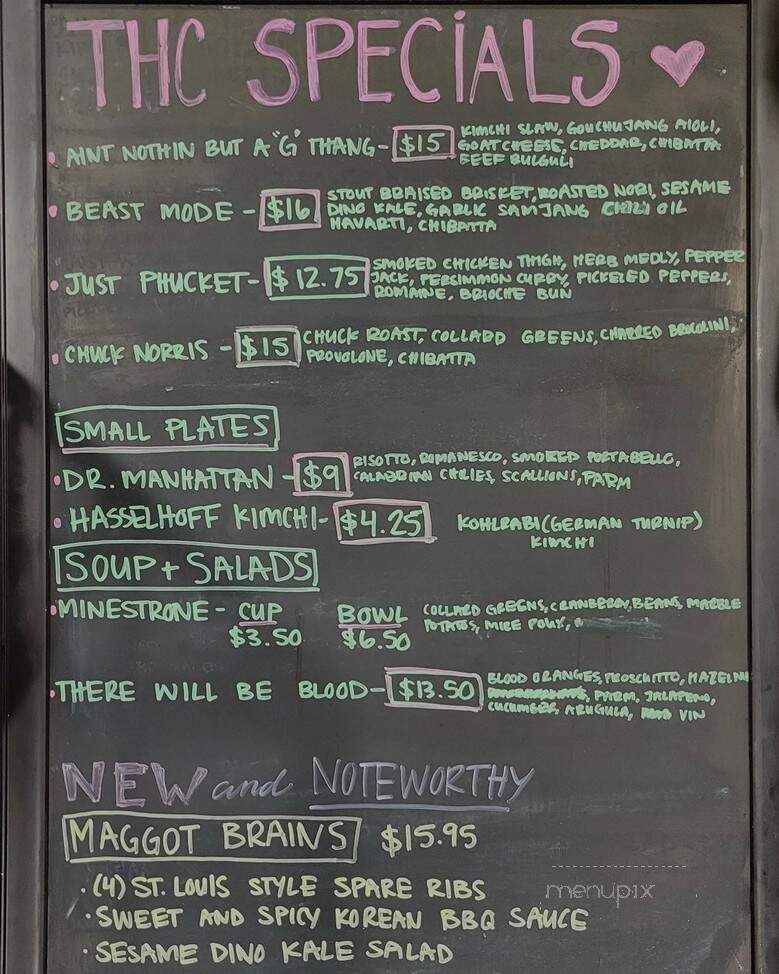 THC SPECIALS
AINT NOTHIN BUT A "G" THANG - $15 KIMCHI SLAW, GOUCHUJANG AIOLI,
GOAT CHEESE, CHEDDAR, CHIBATTA
BEEF BULGULI
BEAST MODE - $16 STOUT BRAISED BRISKET, ROASTED NORI, SESAME
DINO KALE, GARLIC SAMJANG CHILI OIL
HAVARTI, CHIBATTA
JUST PHUCKET - $12.75 SMOKED CHICKEN THIGH, HERB MEDLY, PEPPER
JACK, PERSIMMON CURRY, PICKELED PEPPERS,
ROMAINE, BRIOCHE BUN
CHUCK NORRIS - $15 CHUCK ROAST, COLLARD GREENS, CHARRED BROCOLINI,
PROVOLONE, CHIBATTA
SMALL PLATES
DR. MANHATTAN - $9 RISOTTO, ROMANESCO, SMOKED PORTABELLO,
CALABRIAN CHILIES, SCALLIONS, PARM
HASSELHOFF KIMCHI - $4.25 KOHLRABI (GERMAN TURNIP)
KIMCHI
SOUP + SALADS
MINESTRONE - CUP BOWL COLLARD GREENS, CRANBERRY BEANS, MARBLE
$3.50 $6.50 POTATOS, MIRE POUX,
THERE WILL BE BLOOD - $13.50 BLOOD ORANGES, PROSCHITTO, HAZELNU
PARM, JALAPENO,
CUCUMBER, ARUGULA, VIN
NEW and NOTEWORTHY
MAGGOT BRAINS $15.95
· (4) ST. LOUIS STYLE SPARE RIBS
· SWEET AND SPICY KOREAN BBQ SAUCE
· SESAME DINO KALE SALAD
menupix